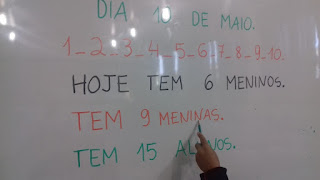 DIA 10 DE MAIO.
1_2_3_4_5_6_7_8_9_10.
HOJE TEM 6 MENINOS.
TEM 9 MENINAS.
TEM 15